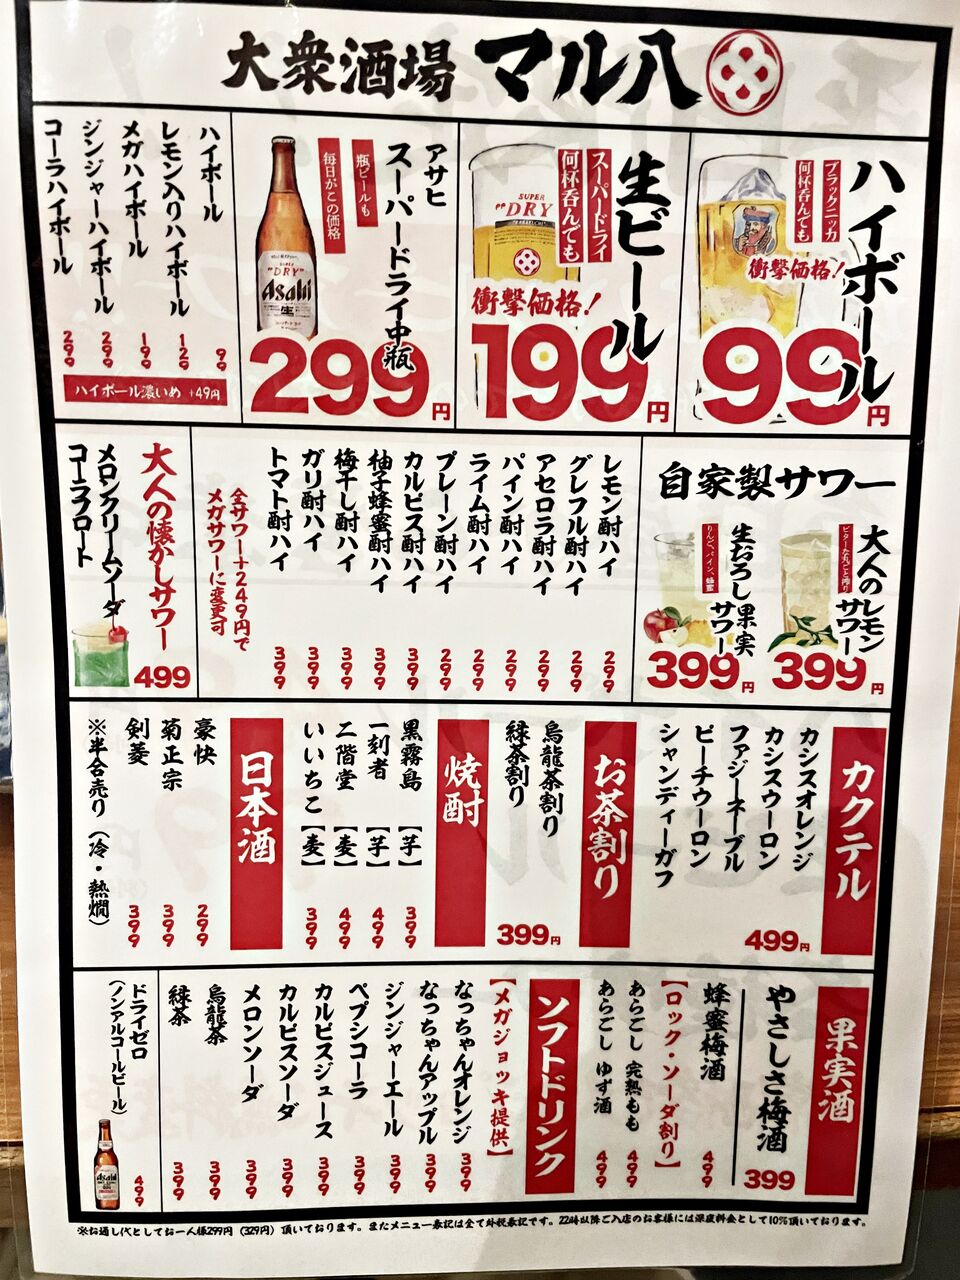 大衆酒場 マル八
ハイボール
ブラックニッカ
何杯呑んでも
衝撃価格!
99円
生ビール
スーパードライ
何杯呑んでも
SUPER
"DRY"
衝撃価格!
199円
アサヒ
スーパードライ中瓶
瓶ビールも
毎日がこの価格
"DRY"
Asahi
生
299円
ハイボール 99
レモン入りハイボール 129
メガハイボール 199
ジンジャーハイボール 299
コーラハイボール 299
ハイボール濃いめ +49円
自家製サワー
大人のレモンサワー
ビターな丸ごと搾り
399円
生おろし果実サワー
りんご、パイン、蜂蜜
399円
レモン酎ハイ 299
グレフル酎ハイ 299
アセロラ酎ハイ 299
パイン酎ハイ 299
ライム酎ハイ 299
プレーン酎ハイ 299
カルピス酎ハイ 399
柚子蜂蜜酎ハイ 399
梅干し酎ハイ 399
ガリ酎ハイ 399
トマト酎ハイ 399
全サワー+249円で
メガサワーに変更可
大人の懐かしサワー
メロンクリームソーダ
コーラフロート
499
カクテル
カシスオレンジ
カシスウーロン
ファジーネーブル
ピーチウーロン
シャンディーガフ
499円
お茶割り
烏龍茶割り
緑茶割り
399円
焼酎
黒霧島【芋】 399
一刻者【芋】 499
二階堂【麦】 499
いいちこ【麦】 399
日本酒
豪快 299
菊正宗 399
剣菱 399
※半合売り(冷・熱燗)
果実酒
やさしさ梅酒
399
蜂蜜梅酒 499
【ロック・ソーダ割り】
あらごし 完熟もも 499
あらごし ゆず酒 499
ソフトドリンク
【メガジョッキ提供】
なっちゃんオレンジ 399
なっちゃんアップル 399
ジンジャーエール 399
ペプシコーラ 399
カルピスジュース 399
カルピスソーダ 399
メロンソーダ 399
烏龍茶 399
緑茶 399
ドライゼロ
(ノンアルコールビール)
499
Asahi
※お通し代としてお一人様299円(329円)頂いております。またメニュー表記は全て外税表記です。22時以降ご入店のお客様には深夜料金として10%頂いております。